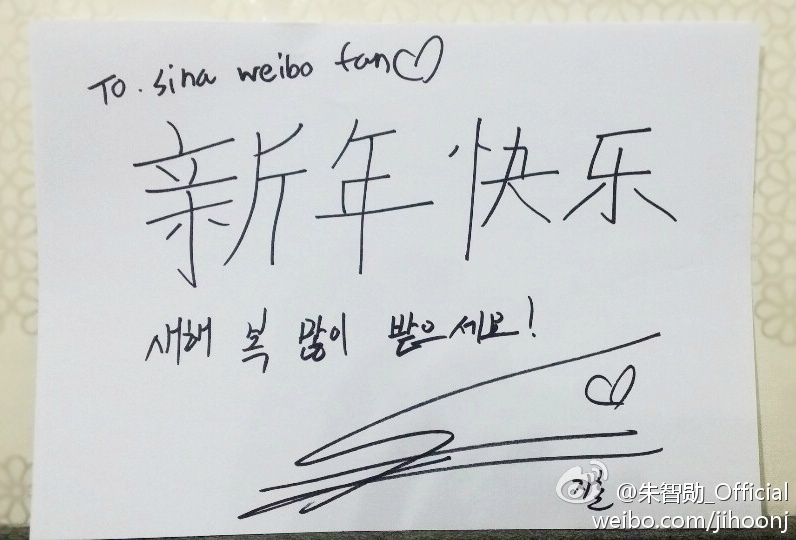 To. sina weibo fan♡
新年快乐
새해 복 많이 받으세요!
@朱智勛_Official
weibo.com/jihoonj